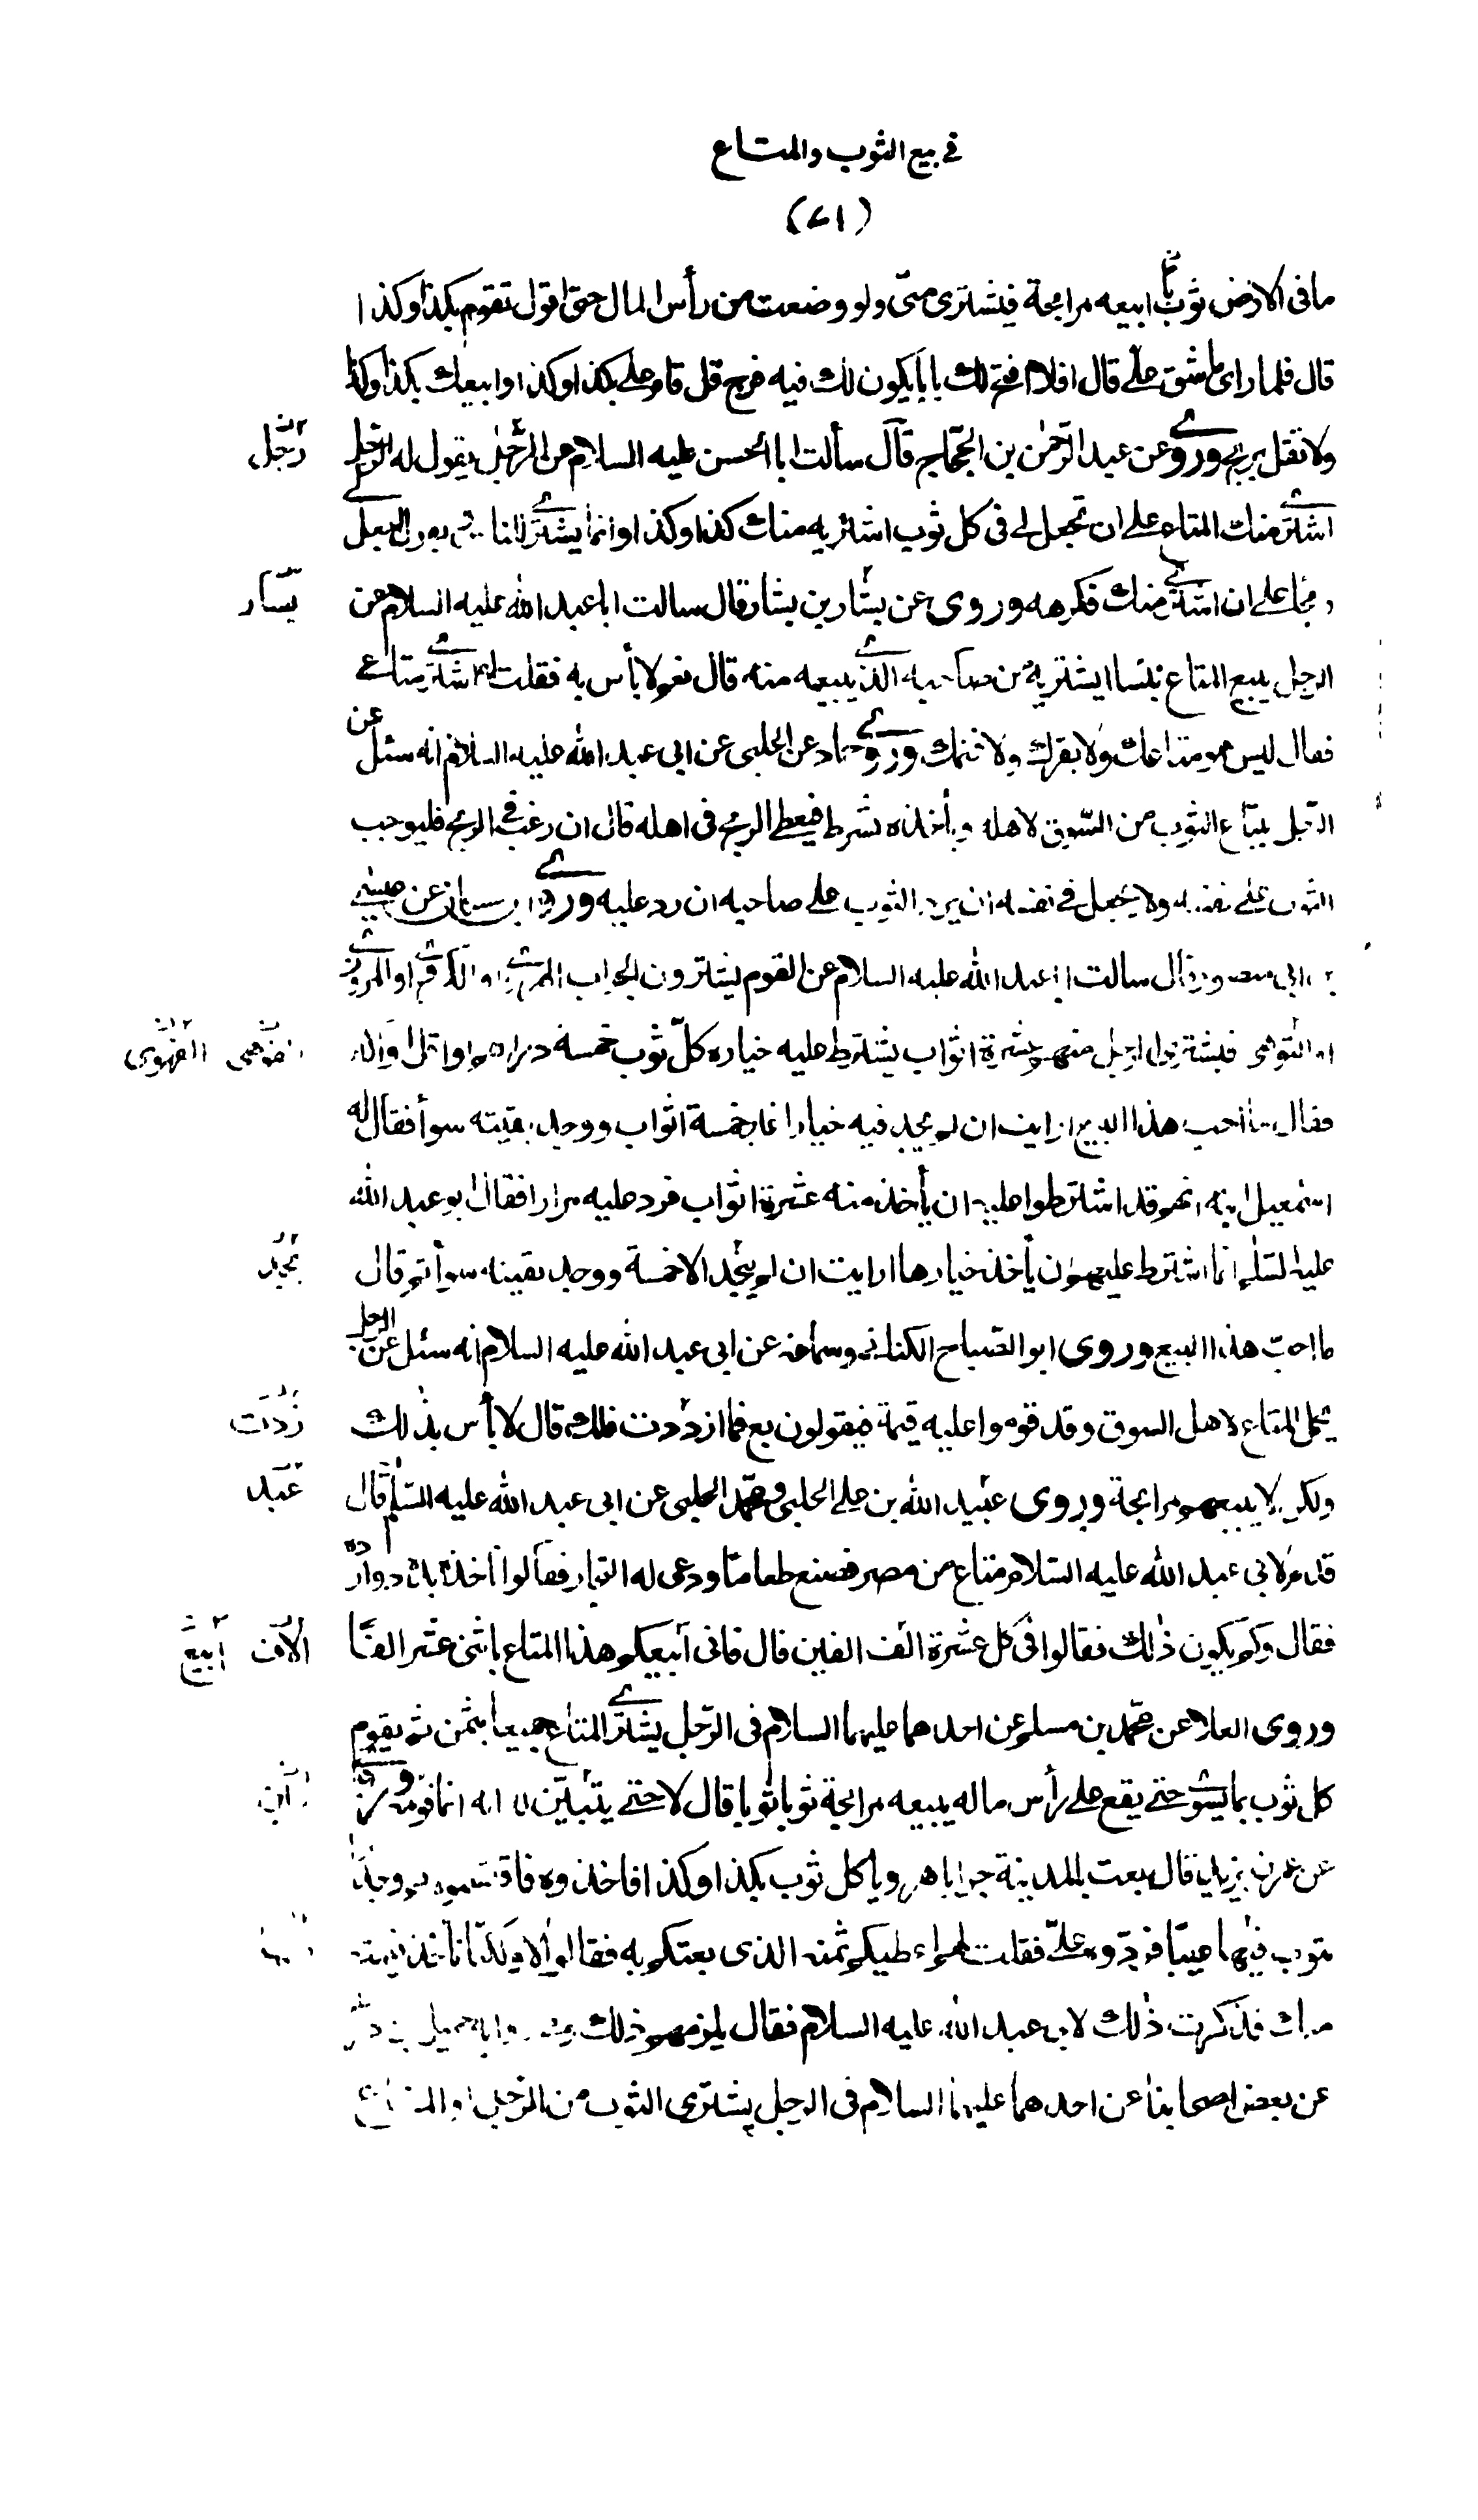 في بيع الثوب والمتاع
(٧١)
ما فى الارض ثوبًا ابيعه مرابحة فيشترى منّى ولو وضعت من رأس المال حتى اقول تقوم بكذا وكذا
قال فلما راى ما شق علي قال افلا افتح لك بابًا يكون لك فيه فرج قل قام علي بكذا وكذا وابيعك بكذا وكذا
ولا تقل بربح وروى عن عبد الرّحمٰن بن الحجّاج قال سألت ابا الحسن عليه السلام عن الرّجل يقول له الرجل
رَجُل
اشترى منك المتاع على ان تجعل لي فى كل ثوب اشتريه منك كذا وكذا وانما يشترى للناس يقول اجعل
ربحا على ان اشترى منك فكرهه وروى عن بشّار بن بشار قال سالت ابا عبد الله عليه السلام عن
يسَار
الرجل يبيع المتاع بنسا ايشتريه من صاحبه الذى يبيعه منه قال نعم لا بأس به فقلت له اشترى متاعى
فقال ليس هو متاعك ولا بقرك ولا غنمك وروى حماد عن الحلبى عن ابى عبد الله عليه السلام انه سئل عن
الرّجل يبتاع الثوب من السّوق لاهله ويأخذه بشرط فيعطى الربح فى اهله قال ان رغب في الربح فليوجب
الثوب على نفسه ولا يجعل في نفسه ان يرد الثوب على صاحبه ان رد عليه وروى ابن مسكان عن عيسى
بن ابى منصور قال سالت ابا عبد الله عليه السلام عن القوم يشترون الجراب الهروى او الكرفى او المروزى
او القوهى فيشترى الرجل منهم عشرة اثواب يشترط عليه خياره كلّ ثوب خمسة دراهم او اقل او اكثر
القُوهى القهَوِى
فقال ما احب هذا البيع ارايت ان لم يجد فيه خيارا غير خمسة اثواب ووجد بقيته سوأ فقال له
اسمعيل ابنه انهم قد اشترطوا عليه ان يأخذ منه عشرة اثواب فرد عليه مرارا فقال ابو عبد الله
عليه السّلام انما اشترط عليهم ان يأخذ خيارها ارايت ان لم يجد الا خمسة ووجد بقيته سوأ ثم قال
يجد
ما احبّ هذا البيع وروى ابو الصّباح الكنانى وسماعة عن ابى عبد الله عليه السلام انه سئل عن الرجل
يحمل المتاع لاهل السوق وقد قوموا عليه قيمة فيقولون بع فما ازددت فلك قال لا بأس بذلك
زدتَ
ولكن لا يبيعهم مرابحة وروى عبيد الله بن علي الحلبى ومحمّد الحلبى عن ابى عبد الله عليه السّلام قال
عَبد
قدم لابى عبد الله عليه السّلام متاع من مصر فصنع طعامًا ودعى له التجار فقالوا نأخذه بده دوازده
فقال وكم يكون ذٰلك فقالوا فى كل عشرة الف الفين قال فانى ابيعكم هذا المتاع باثنى عشر الفًا
الآف ابيع
وروى العلا عن محمّد بن مسلم عن احدهما عليهما السلام فى الرّجل يشترى المتاع جميعا بثمن ثم يقوم
كل ثوب بما يسوى حتى يقع على رأس ماله يبيعه مرابحة ثوبا ثوبا قال لا حتى يتبيّن له انه انما قومه وروى
عن عمر بن يزيد قال بعت بالمدينة جرابا هرويا كل ثوب بكذا وكذا فاخذوه فاقتسموه ووجدوا
بثوب فيها عيبًا فردّوه علىّ فقلت لهم اعطيكم ثمنه الذى بعتكم به فقالوا لا ولكنّا نأخذ قيمته
منك فذكرت ذٰلك لابى عبد الله عليه السلام فقال يلزمهم ذلك جميل بن
عن بعض اصحابنا عن احدهما عليهما السلام فى الرجل يشترى الثوب من الرّجل او المتاع